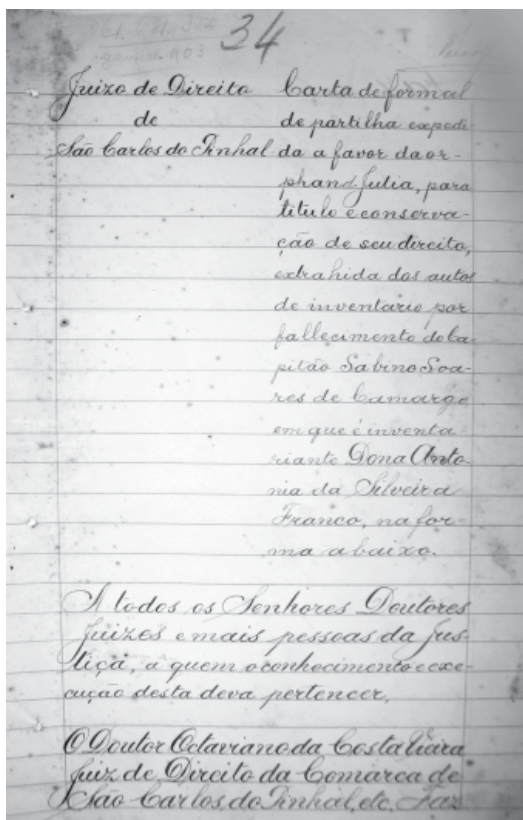 34
Juizo de Direito
de
São Carlos do Pinhal
Carta de formal
de partilha expedi-
da a favor da or-
phand Julia, para
titulo e conserva-
ção de seu direito,
extrahida dos autos
de inventario por
fallecimento do Ca-
pitão Sabino Soa-
res de Camargo,
em que é inventa-
riante Dona Anto-
nia da Silveira
Franco, na for-
ma abaixo.
A todos os Senhores Doutores
Juizes e mais pessoas da Jus-
tiça, a quem o conhecimento e exe-
cução desta deva pertencer,
O Doutor Octaviano da Costa Vieira
Juiz de Direito da Comarca de
São Carlos do Pinhal, etc. Faz